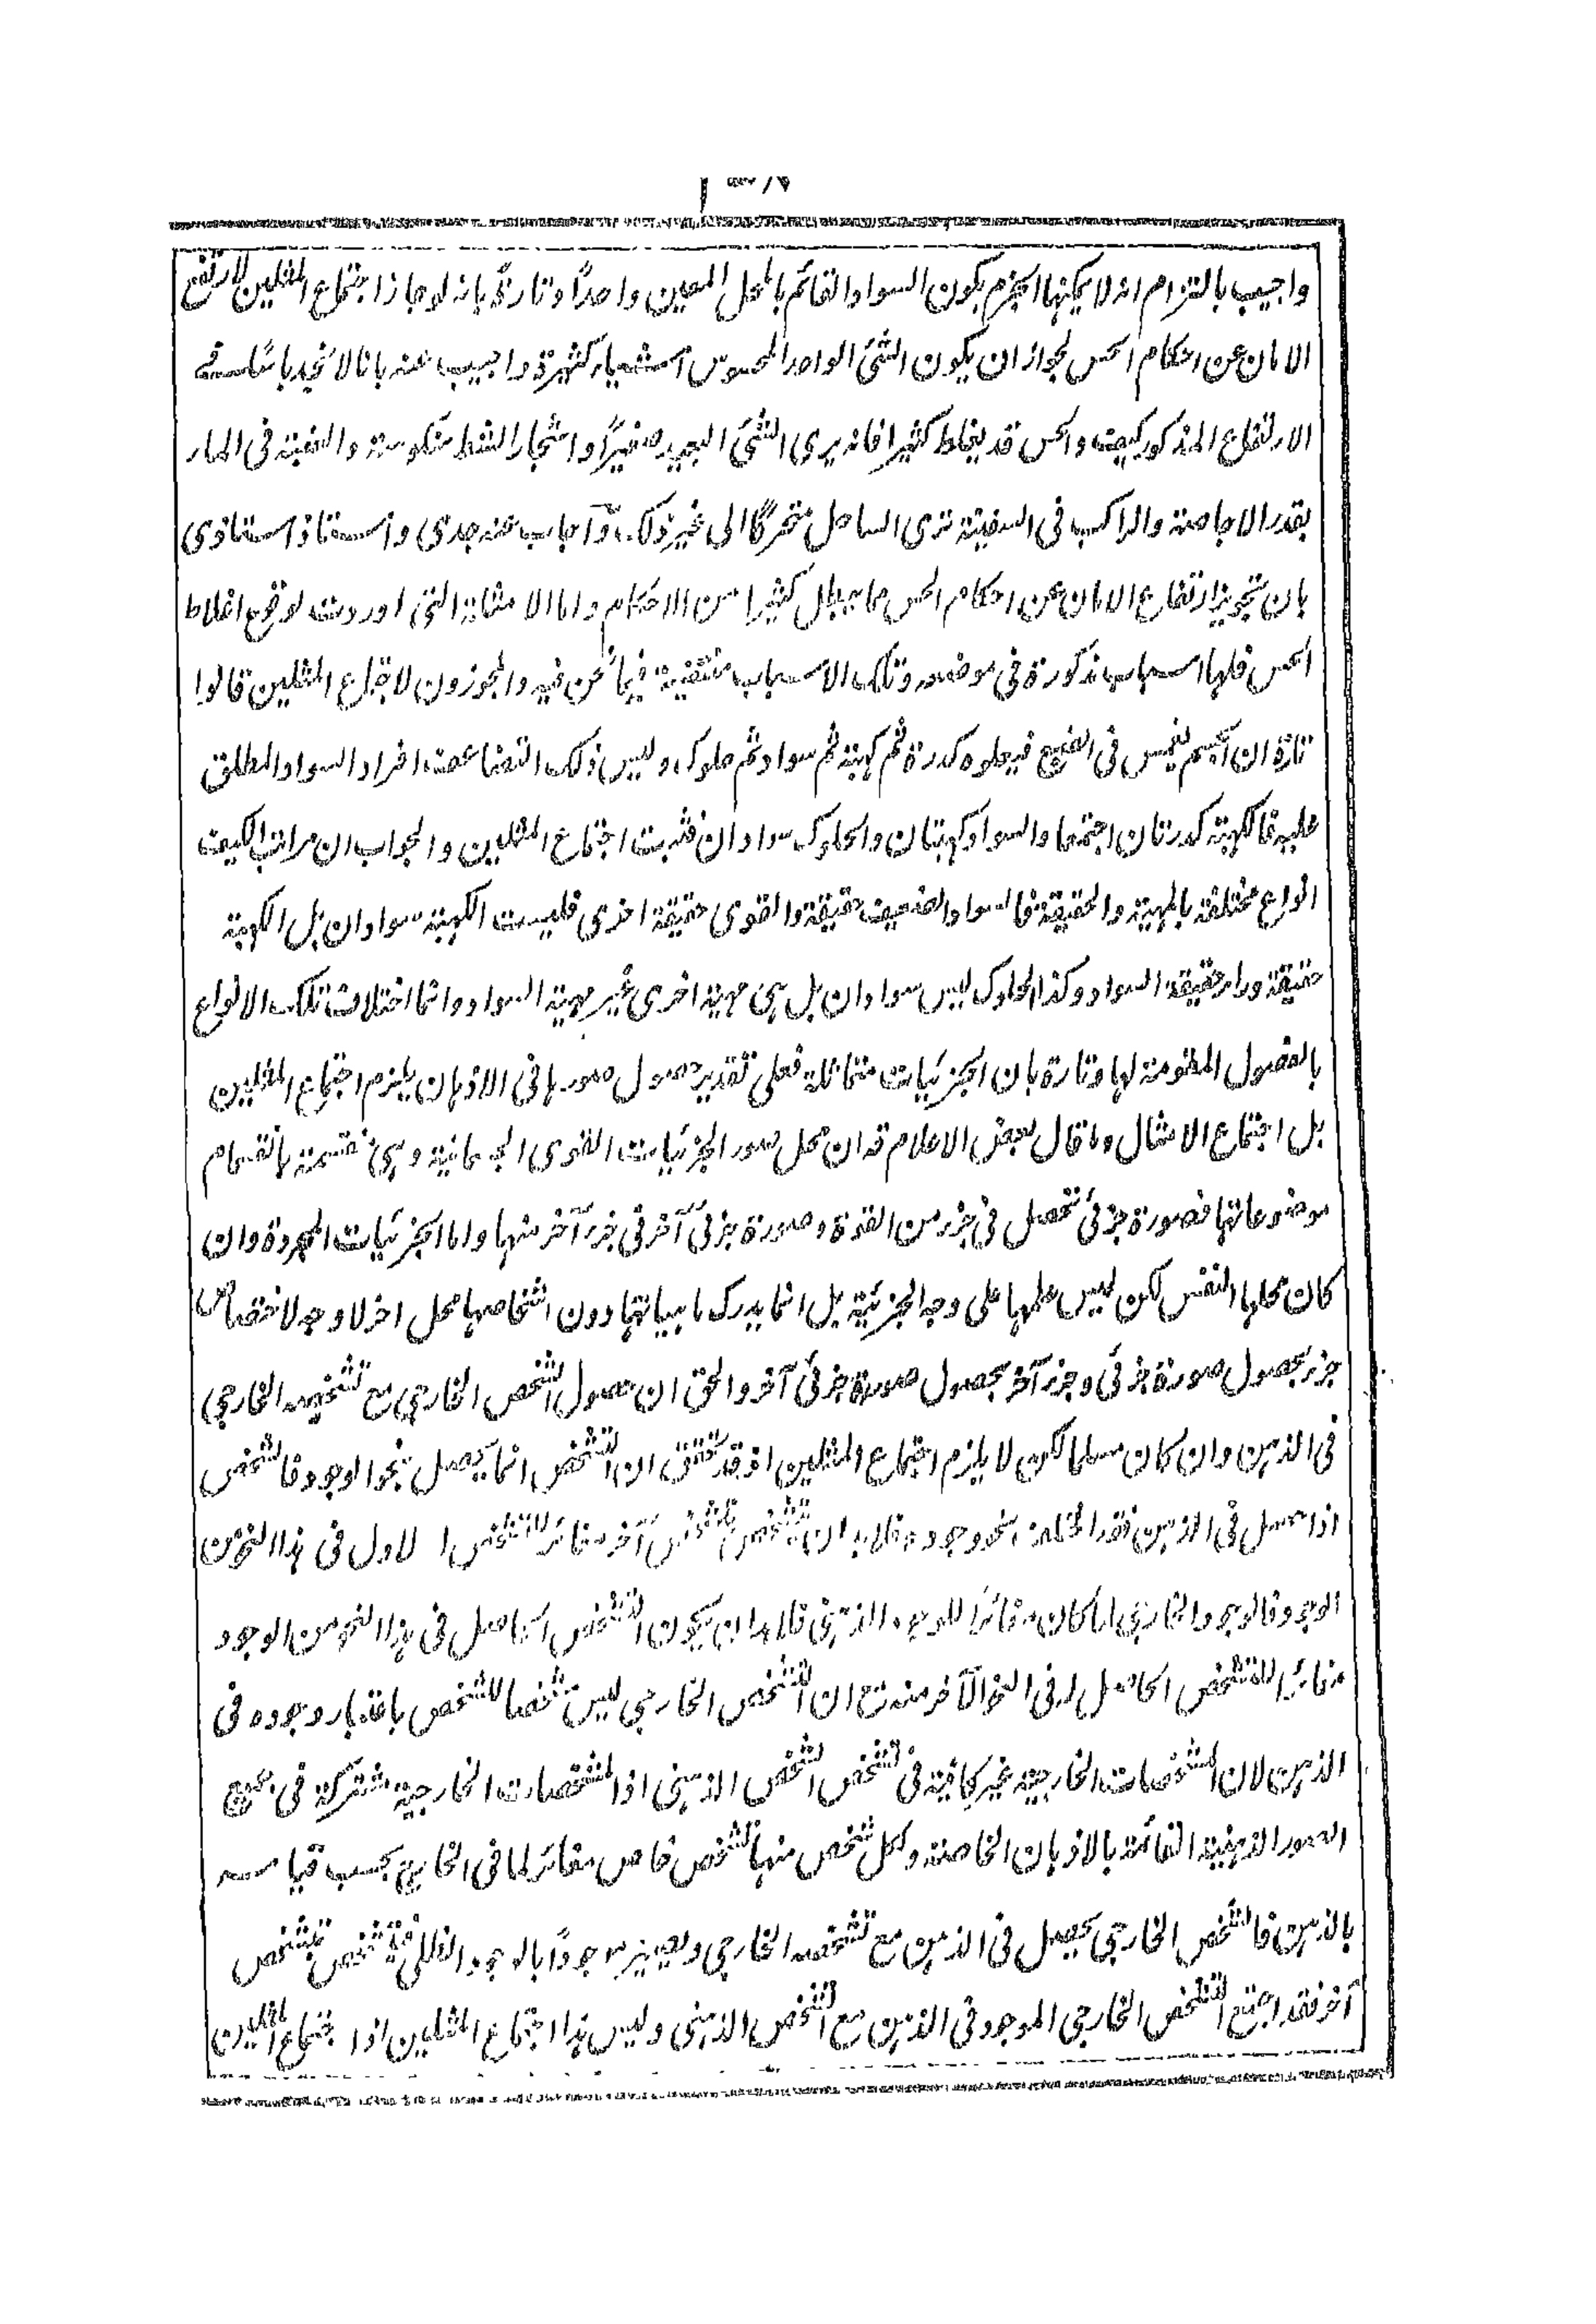 واجيب بالتزام انه لا يمكنها الجزم بكون السواد القائم بالمحل المعين واحدًا وتارةً بانه لو جاز اجتماع المثلين لارتفع
الامان عن احكام الحس لجواز ان يكون الشئ الواحد المحسوس اشياء كثيرة واجيب عنه بانا لا نجد باسًا في
الارتفاع المذكور كيف والحس قد يغلط كثيرا فانه يرى الشئ البعيد صغيرًا واشجار الشط منكوسة والعنبة فى الماء
بقدر الاجاصة والراكب فى السفينة ترى الساحل متحركًا الى غير ذلك وآجاب عنه جدى واستاذ استاذى
بان تجويز ارتفاع الامان عن احكام الحس مما يبطل كثيرا من الاحكام واما الامثلة التى اوردت لوقوع اغلاط
الحس فلها اسباب مذكورة فى موضعه وتلك الاسباب منتفية فيما نحن فيه والمجوزون لاجتماع المثلين قالوا
تارة ان الجسم يغمس فى الصبغ فيعلوه كدرة ثم كهبة ثم سواد ثم حلوك وليس ذلك الا لتضاعف افراد السواد المطلق
عليه فالكهبة كدرتان اجتمعا والسواد كهبتان والحلوك سوادان فثبت اجتماع المثلين والجواب ان مراتب الكيف
انواع مختلفة بالمهية والحقيقة فالسواد الضعيف حقيقة والقوى حقيقة اخرى فليست الكهبة سوادان بل الكهبة
حقيقة وراء حقيقة السواد وكذا الحلوك ليس سوادان بل هى مهية اخرى غير مهية السواد وانما اختلاف تلك الانواع
بالفصول المقومة لها وتارة بان الجزئيات متماثلة فعلى تقدير حصول صورها فى الاذهان يلزم اجتماع المثلين
بل اجتماع الامثال وما قال بعض الاعلام قه ان محل صور الجزئيات القوى الجسمانية وهى منقسمة بانقسام
موضوعاتها فصورة جزئى تحصل فى جزء من القوة وصورة جزئى آخر فى جزء آخر منها واما الجزئيات المجردة وان
كان محلها النفس لكن ليس علمها على وجه الجزئية بل انما يدرك ماهياتها دون اشخاصها محل اخر لا وجه لاختصاص
جزء بحصول صورة جزئى وجزء آخر بحصول صورة جزئى آخر والحق ان حصول الشخص الخارجى مع تشخصه الخارجى
فى الذهن وان كان مسلما لكن لا يلزم اجتماع المثلين اذ قد تحقق ان التشخص انما يحصل بنحو الوجود فالشخص
اذا حصل فى الذهن فقد اختلف نحو وجوده فلابد ان يتشخص بتشخص آخر مغائر للتشخص الاول فى هذا النحو من
الوجود فالوجود الخارجى لما كان مغائرًا للوجود الذهنى فلابد ان يكون التشخص الحاصل فى هذا النحو من الوجود
مغائرًا للتشخص الحاصل له فى النحو الآخر منه مع ان التشخص الخارجى ليس مشخصا للشخص باعتبار وجوده فى
الذهن لان المشخصات الخارجية غير كافية فى تشخص الشخص الذهنى اذ المشخصات الخارجية مشتركة فى جميع
الصور الذهنية القائمة بالاذهان الخاصة ولكل شخص منها تشخص خاص مغائر لما فى الخارج بحسب قيامه
بالذهن فالشخص الخارجى يحصل فى الذهن مع تشخصه الخارجى ويصير موجودًا بالوجود الظلى فيتشخص بتشخص
آخر فقد اجتمع الشخص الخارجى الموجود فى الذهن مع الشخص الذهنى وليس هذا اجتماع المثلين اذا اجتماع المثلين